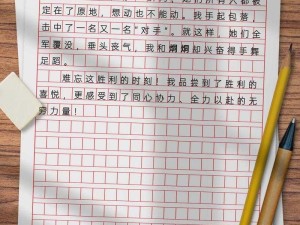 定在了原地，想动也不能动。找手起包落，
击中了一名又一名“对手”。就这样，她们全
军覆没，垂头丧气，我和炯炯却兴奋得手舞
足蹈。
难忘这胜利的时刻！我品尝到了胜利的
喜悦，更感受到了同心协力、全力以赴的无
穷力量！